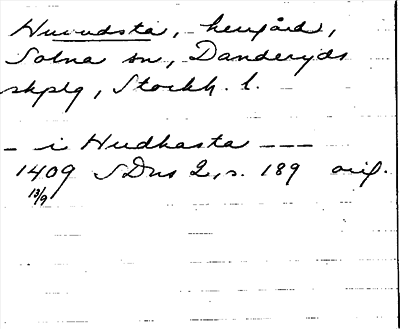 Huvudsta, herrgård,
Solna sn, Danderyds
skplg, Stockh. l.
- i Hudhasta ---
1409 SDns 2, s. 189 orig.
13/9